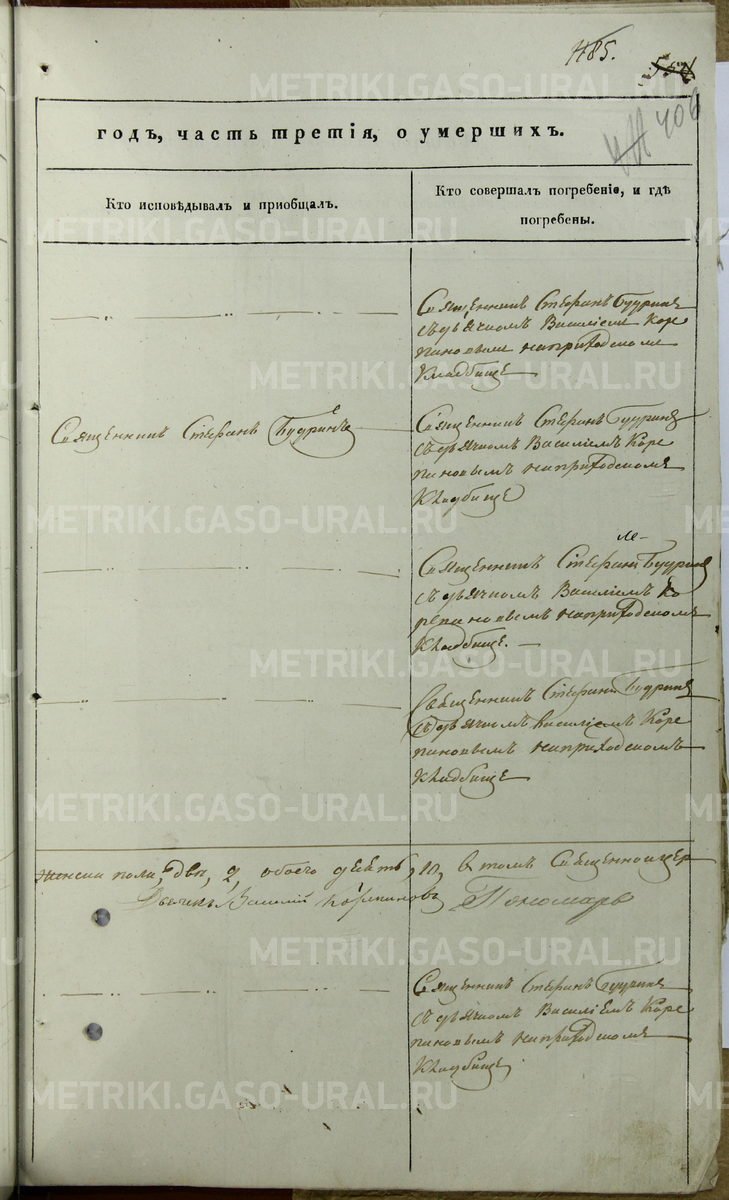 485.
406
годъ, часть третія, о умершихъ.
Кто исповѣдывалъ и приобщалъ.
Кто совершалъ погребеніе, и гдѣ
погребены.
Священникъ Стефанъ Будринъ
съ дьячкомъ Василіемъ Коре
пановымъ на приходскомъ
кладбище
Священникъ Стефанъ Будринъ
Священникъ Стефанъ Будринъ
съ дьячкомъ Василіемъ Коре
пановымъ на приходскомъ
кладбище
Священникъ Стефанъ Будринъ
съ дьячкомъ Василіемъ Ко
репановымъ на приходскомъ
кладбище.
Священникъ Стефанъ Будринъ
съ дьячкомъ Василіемъ Коре
пановымъ на приходскомъ
кладбище
женска пола, две, 2, обоего десять, 10, в томъ Священноиер
Дьячекъ Василий Корепановъ Пономарь
Священникъ Стефанъ Будринъ
съ дьячкомъ Василіемъ Коре
пановымъ на приходскомъ
кладбище
METRIKI.GASO-URAL.RU